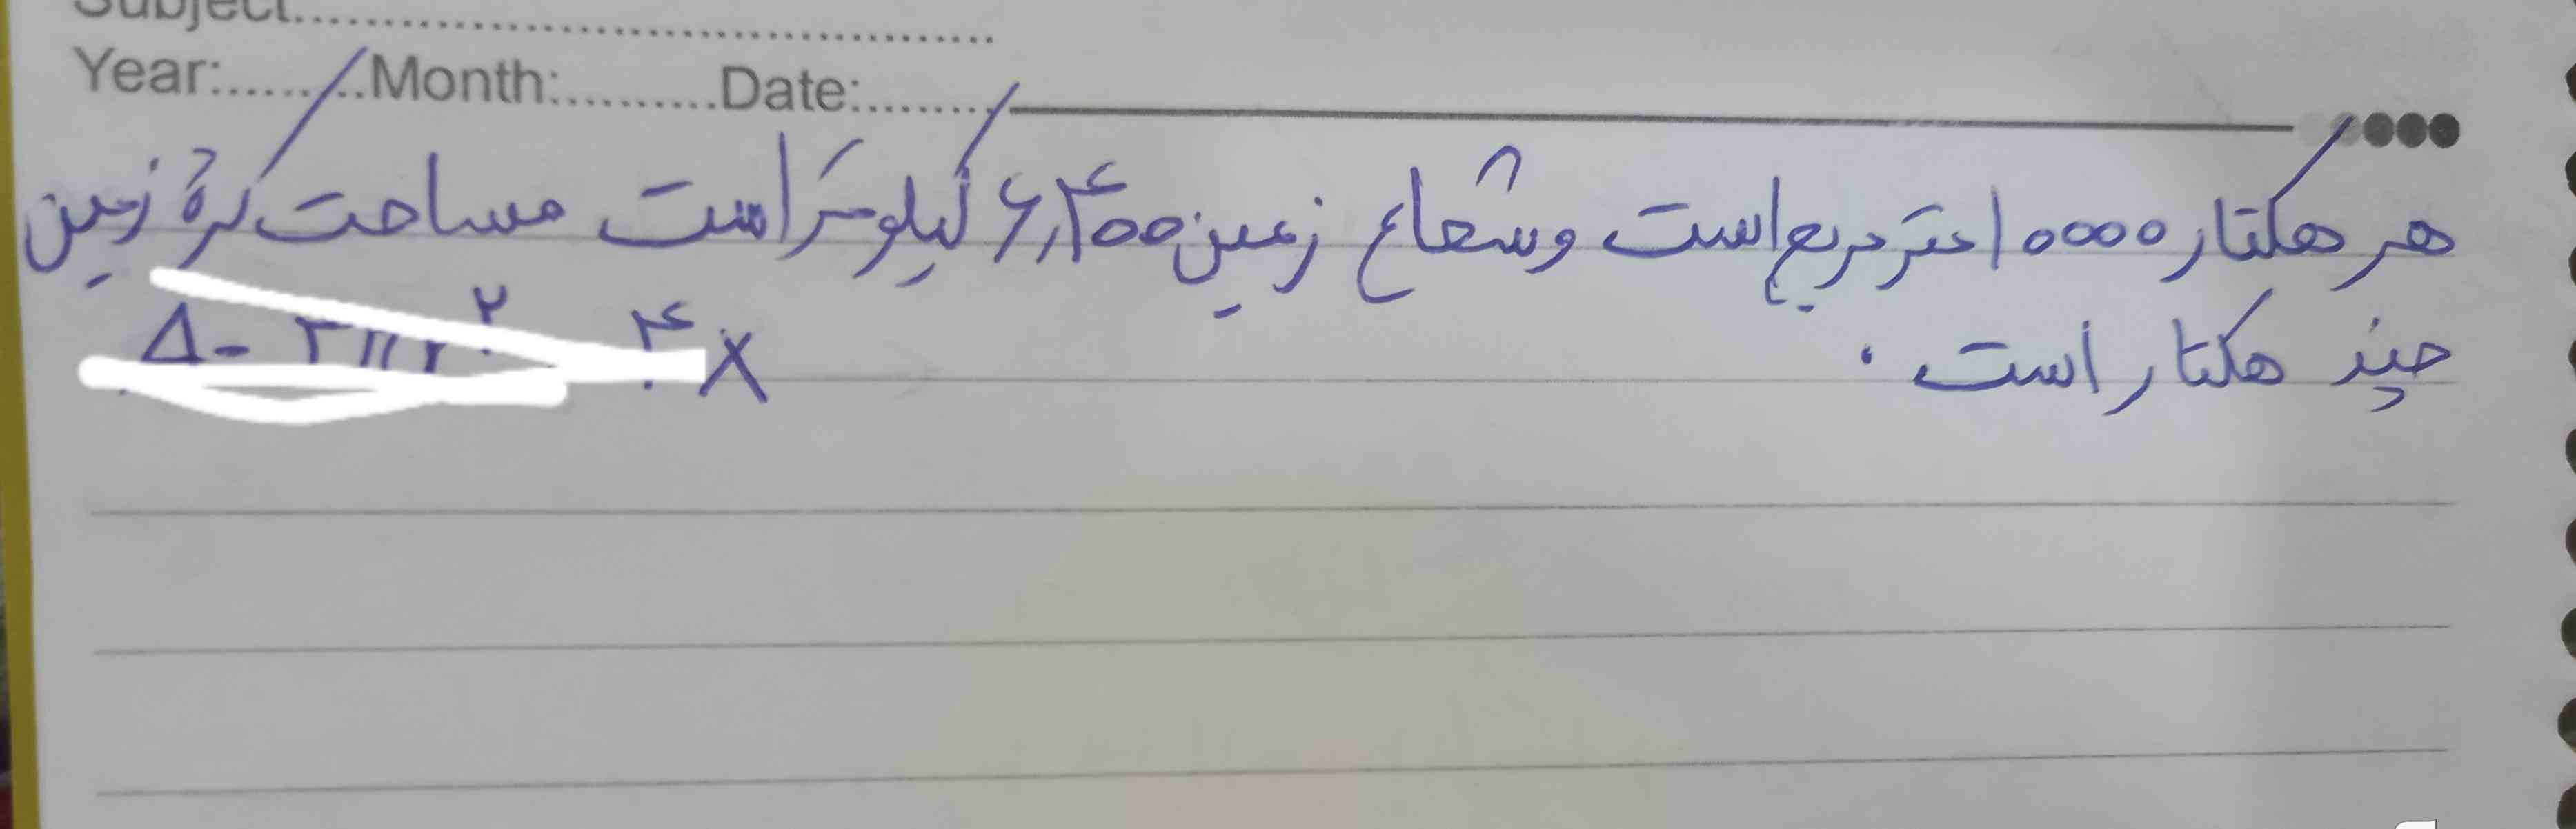 Subject:
Year: Month: Date:
هر هکتار ۱۰۰۰۰ متر مربع است و شعاع زمین ۶,۴۰۰ کیلومتر است مساحت کرهٔ زمین
چند هکتار است .